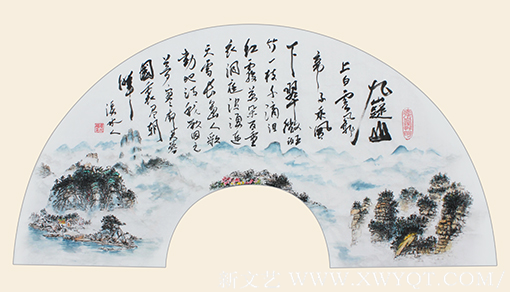 九嶷山
上白雲飛
帝子乘風
下翠微斑
竹一枝千滴泪
紅霞萬朵百重
衣洞庭波涌连
天雪長島人歌
動地诗我欲因之
夢寥廓芙蓉
國裏盡朝
暉
新文艺 WWW.XWYQT.COM/